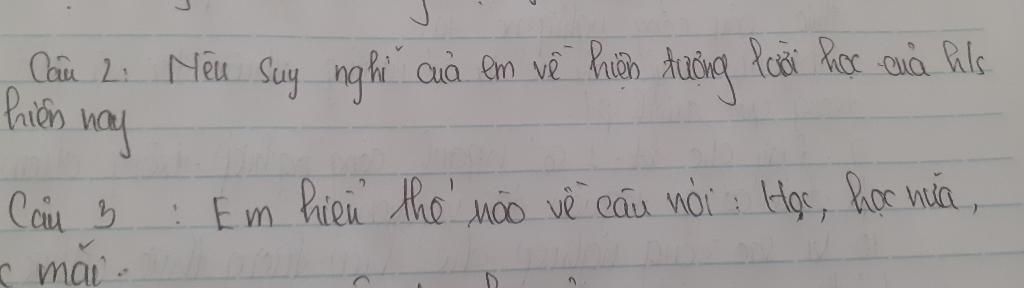 Câu 2: Nêu suy nghĩ của em về hiện tượng lười học của hls
hiện nay
Câu 3 : Em hiểu thế nào về câu nói: Học, học nữa,
c mãi.